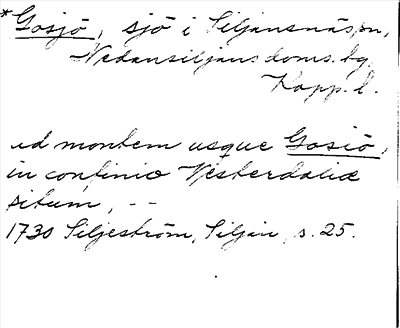 *Gosjö, sjö i Siljansnäs sn,
Nedansiljans doms. bg
Kopp. l.
ad montem usque Gosiö,
in confinio Vesterdaliæ
situm, --
1730 Siljeström, Siljan, s. 25.